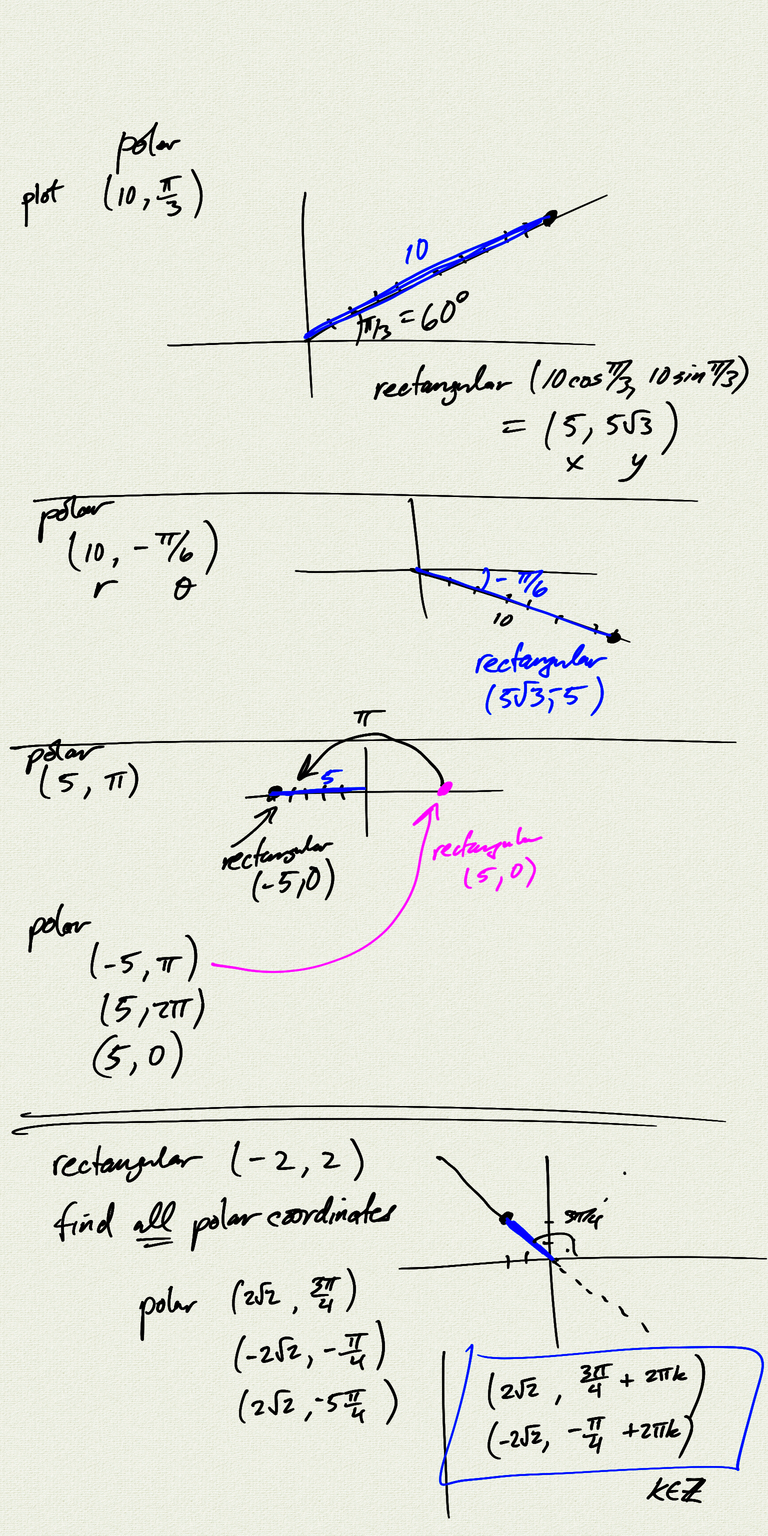 polar
plot (10, π/3)
10
π/3 = 60°
rectangular (10 cos π/3, 10 sin π/3)
= (5, 5√3)
x y
polar
(10, -π/6)
r θ
-π/6
10
rectangular
(5√3, -5)
π
polar
(5, π)
5
rectangular
(-5, 0)
rectangular
(5, 0)
polar
(-5, π)
(5, 2π)
(5, 0)
rectangular (-2, 2)
find all polar coordinates
3π/4
polar (2√2, 3π/4)
(-2√2, -π/4)
(2√2, -5π/4)
(2√2, 3π/4 + 2πk)
(-2√2, -π/4 + 2πk)
k∈ℤ